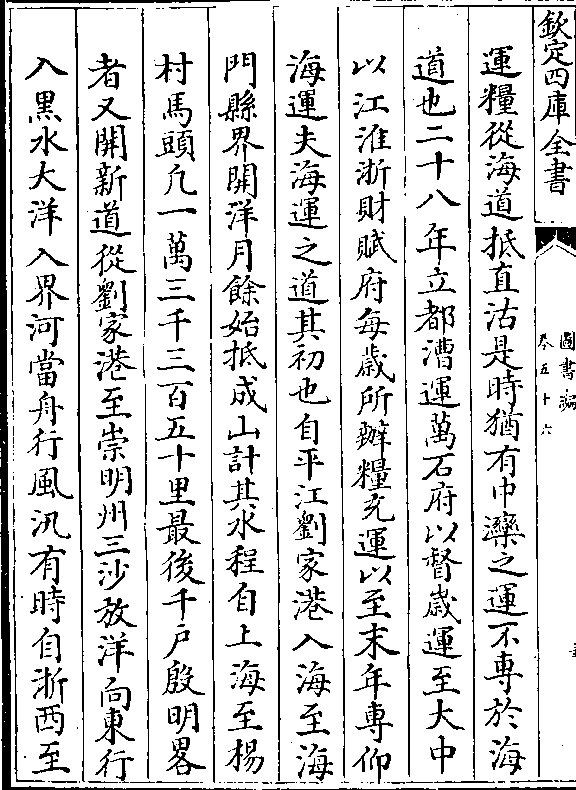 欽定四庫全書
圖書編
卷五十六
運糧從海道抵直沽是時猶有中灤之運不專於海
道也二十八年立都漕運萬石府以督歲運至大中
以江淮浙財賦府每歲所辦糧充運以至末年專仰
海運夫海運之道其初也自平江劉家港入海至海
門縣界開洋月餘始抵成山計其水程自上海至楊
村馬頭凢一萬三千三百五十里最後千戶殷明畧
者又開新道從劉家港至崇明州三沙放洋向東行
入黒水大洋入界河當舟行風汛有時自浙西至